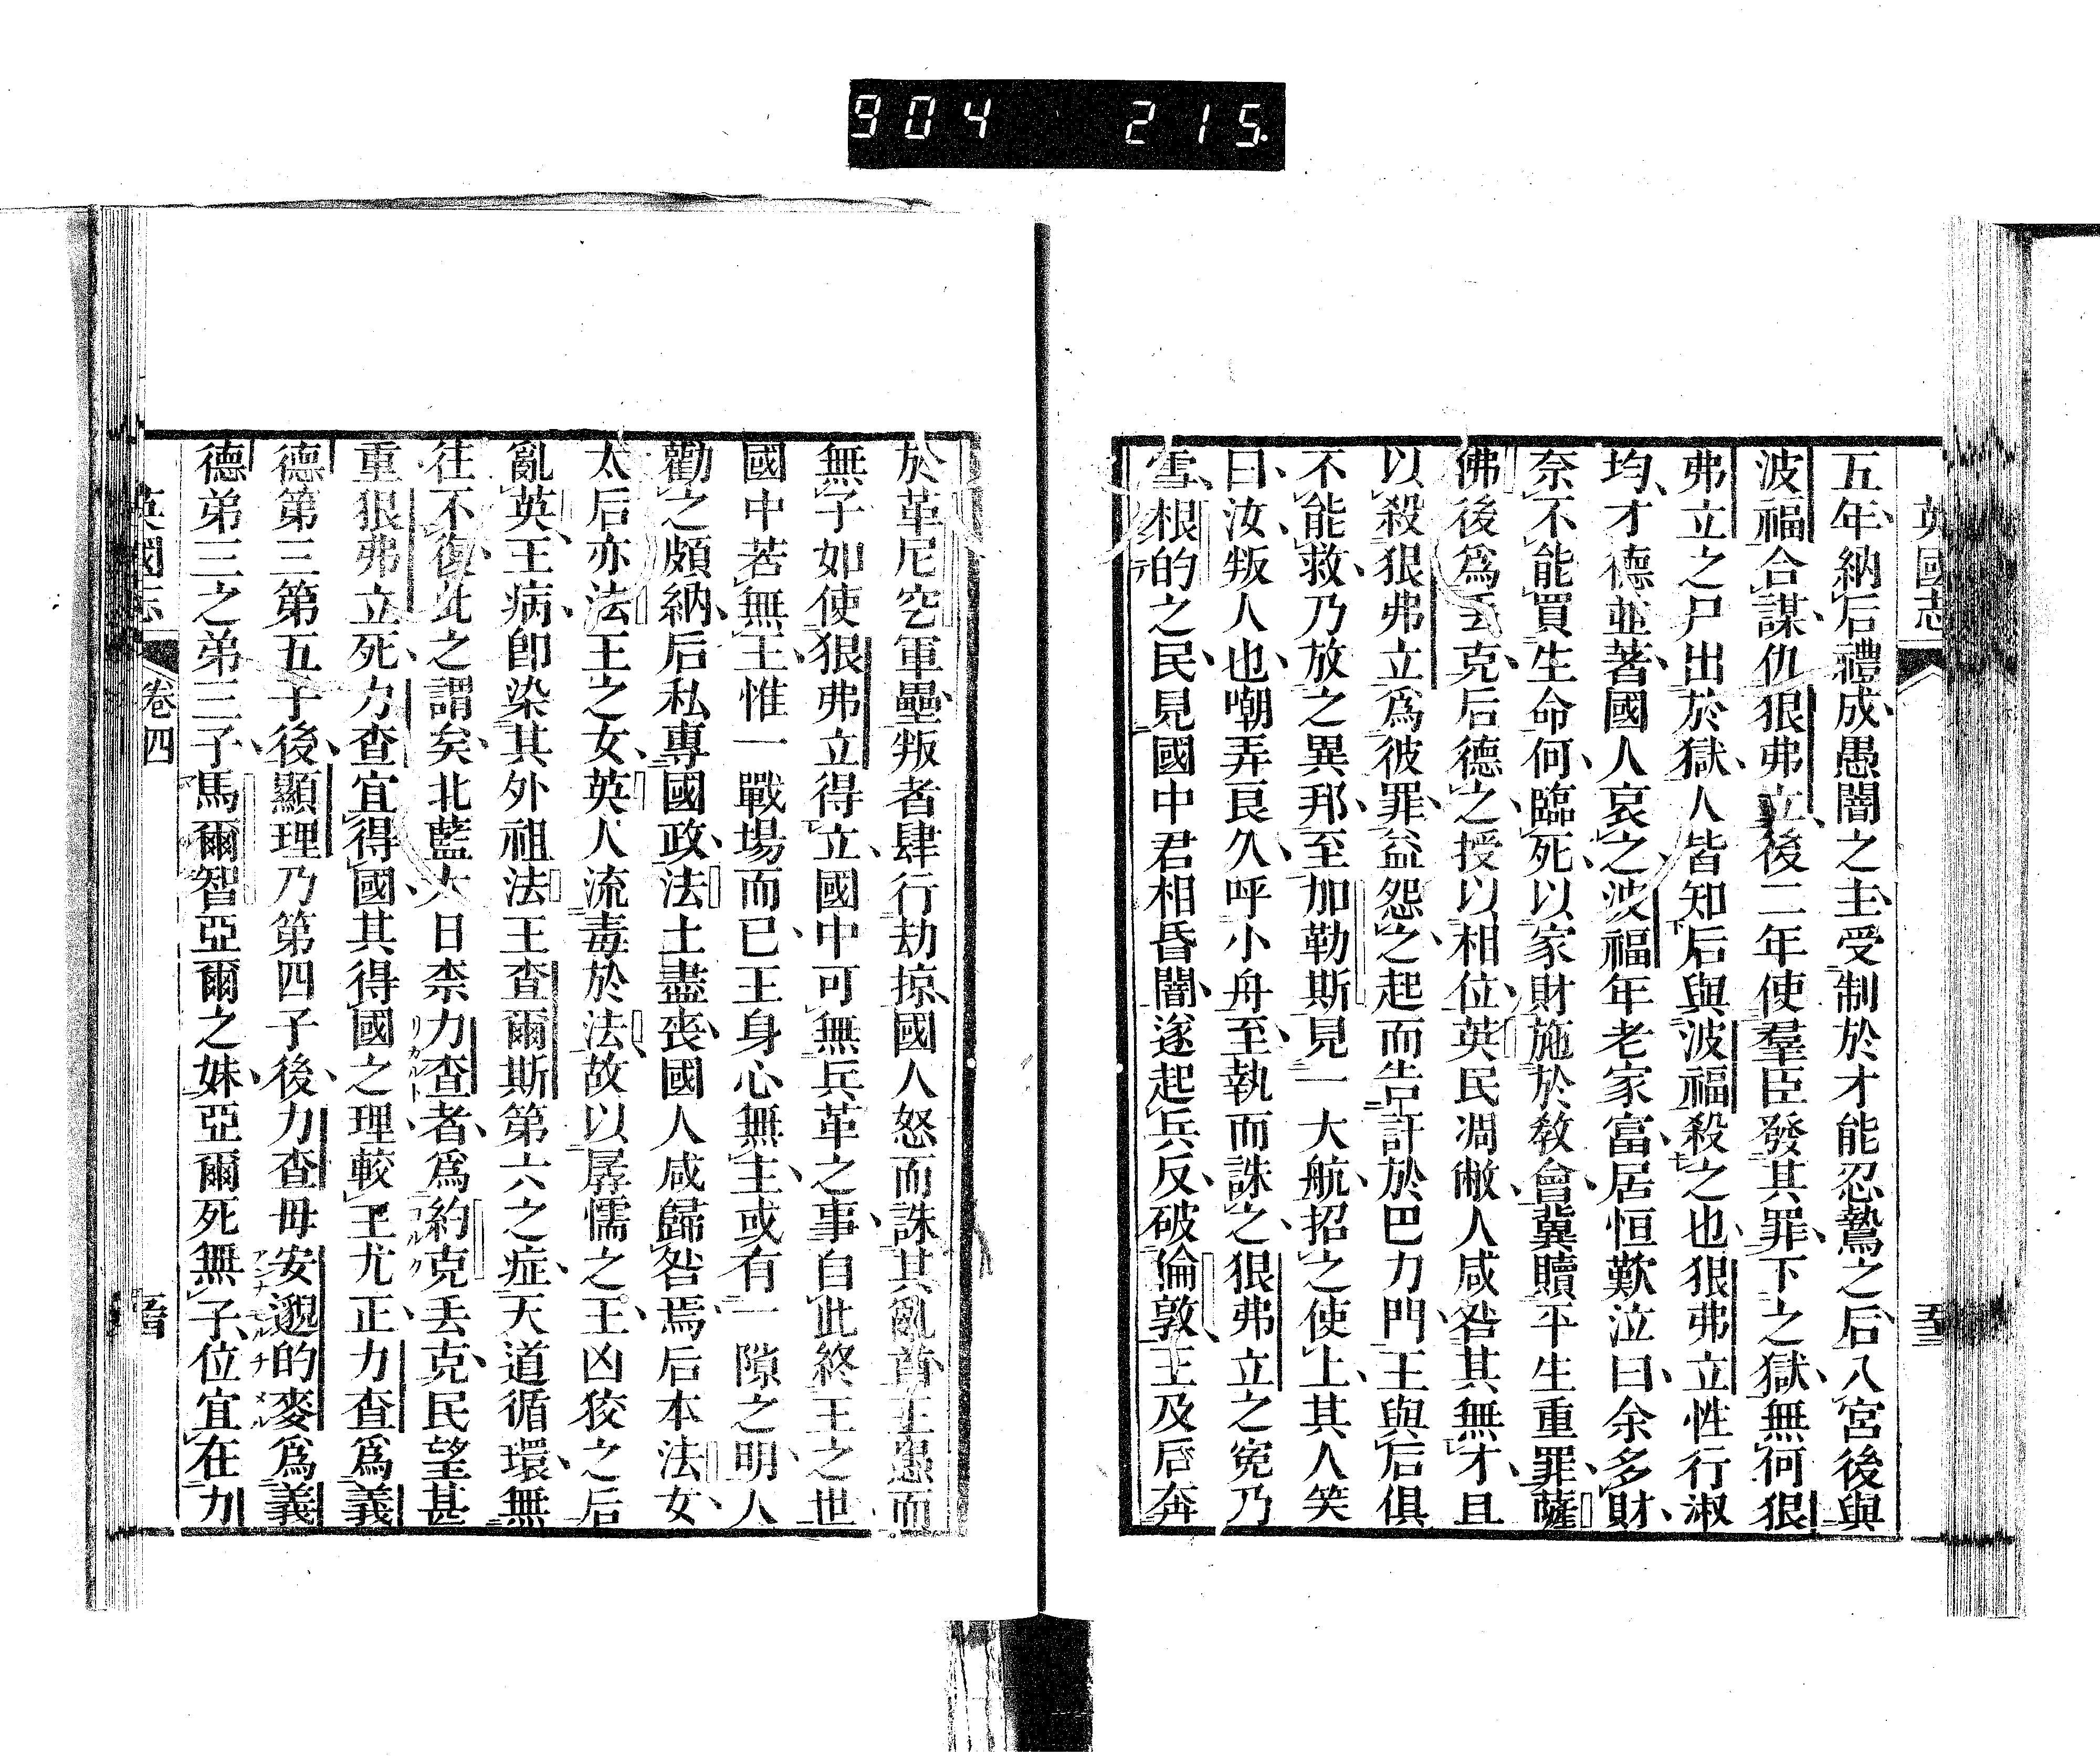 904 215
英國志
五年納后禮成愚闇之主受制於才能忍鷙之后入宮後與
波福合謀仇狠弗立後二年使羣臣發其罪下之獄無何狠
弗立之尸出於獄人皆知后與波福殺之也狠弗立性行淑
均才德並著國人哀之波福年老家富居恒歎泣曰余多財
奈不能買生命何臨死以家財施於教會冀贖平生重罪薩
佛後爲丟克后德之授以相位英民凋敝人咸咎其無才且
以殺狠弗立爲彼罪益怨之起而告訐於巴力門王與后俱
不能救乃放之異邦至加勒斯見一大航招之使上其人笑
曰汝叛人也嘲弄良久呼小舟至執而誅之狠弗立之寃乃
雪根的之民見國中君相昏闇遂起兵反破倫敦王及后奔
於革尼空軍壘叛者肆行劫掠國人怒而誅其亂首王憊而
無子如使狠弗立得立國中可無兵革之事自此終王之世
國中若無王惟一戰場而已王身心無主或有一隙之明人
勸之頗納后私專國政法土盡喪國人咸歸咎焉后本法女
太后亦法王之女英人流毒於法故以孱懦之王凶狡之后
亂英王病卽染其外祖法王查爾斯第六之症天道循環無
往不復此之謂矣北藍大日柰力查者爲約克丟克民望甚
リカルト
ヨルク
重狠弗立死力查宜得國其得國之理較王尤正力查爲義
德第三第五子後顯理乃第四子後力查母安邈的麥爲義
アンナモルチメル
德弟三之弟三子馬爾智亞爾之妹亞爾死無子位宜在力
英國志
卷四